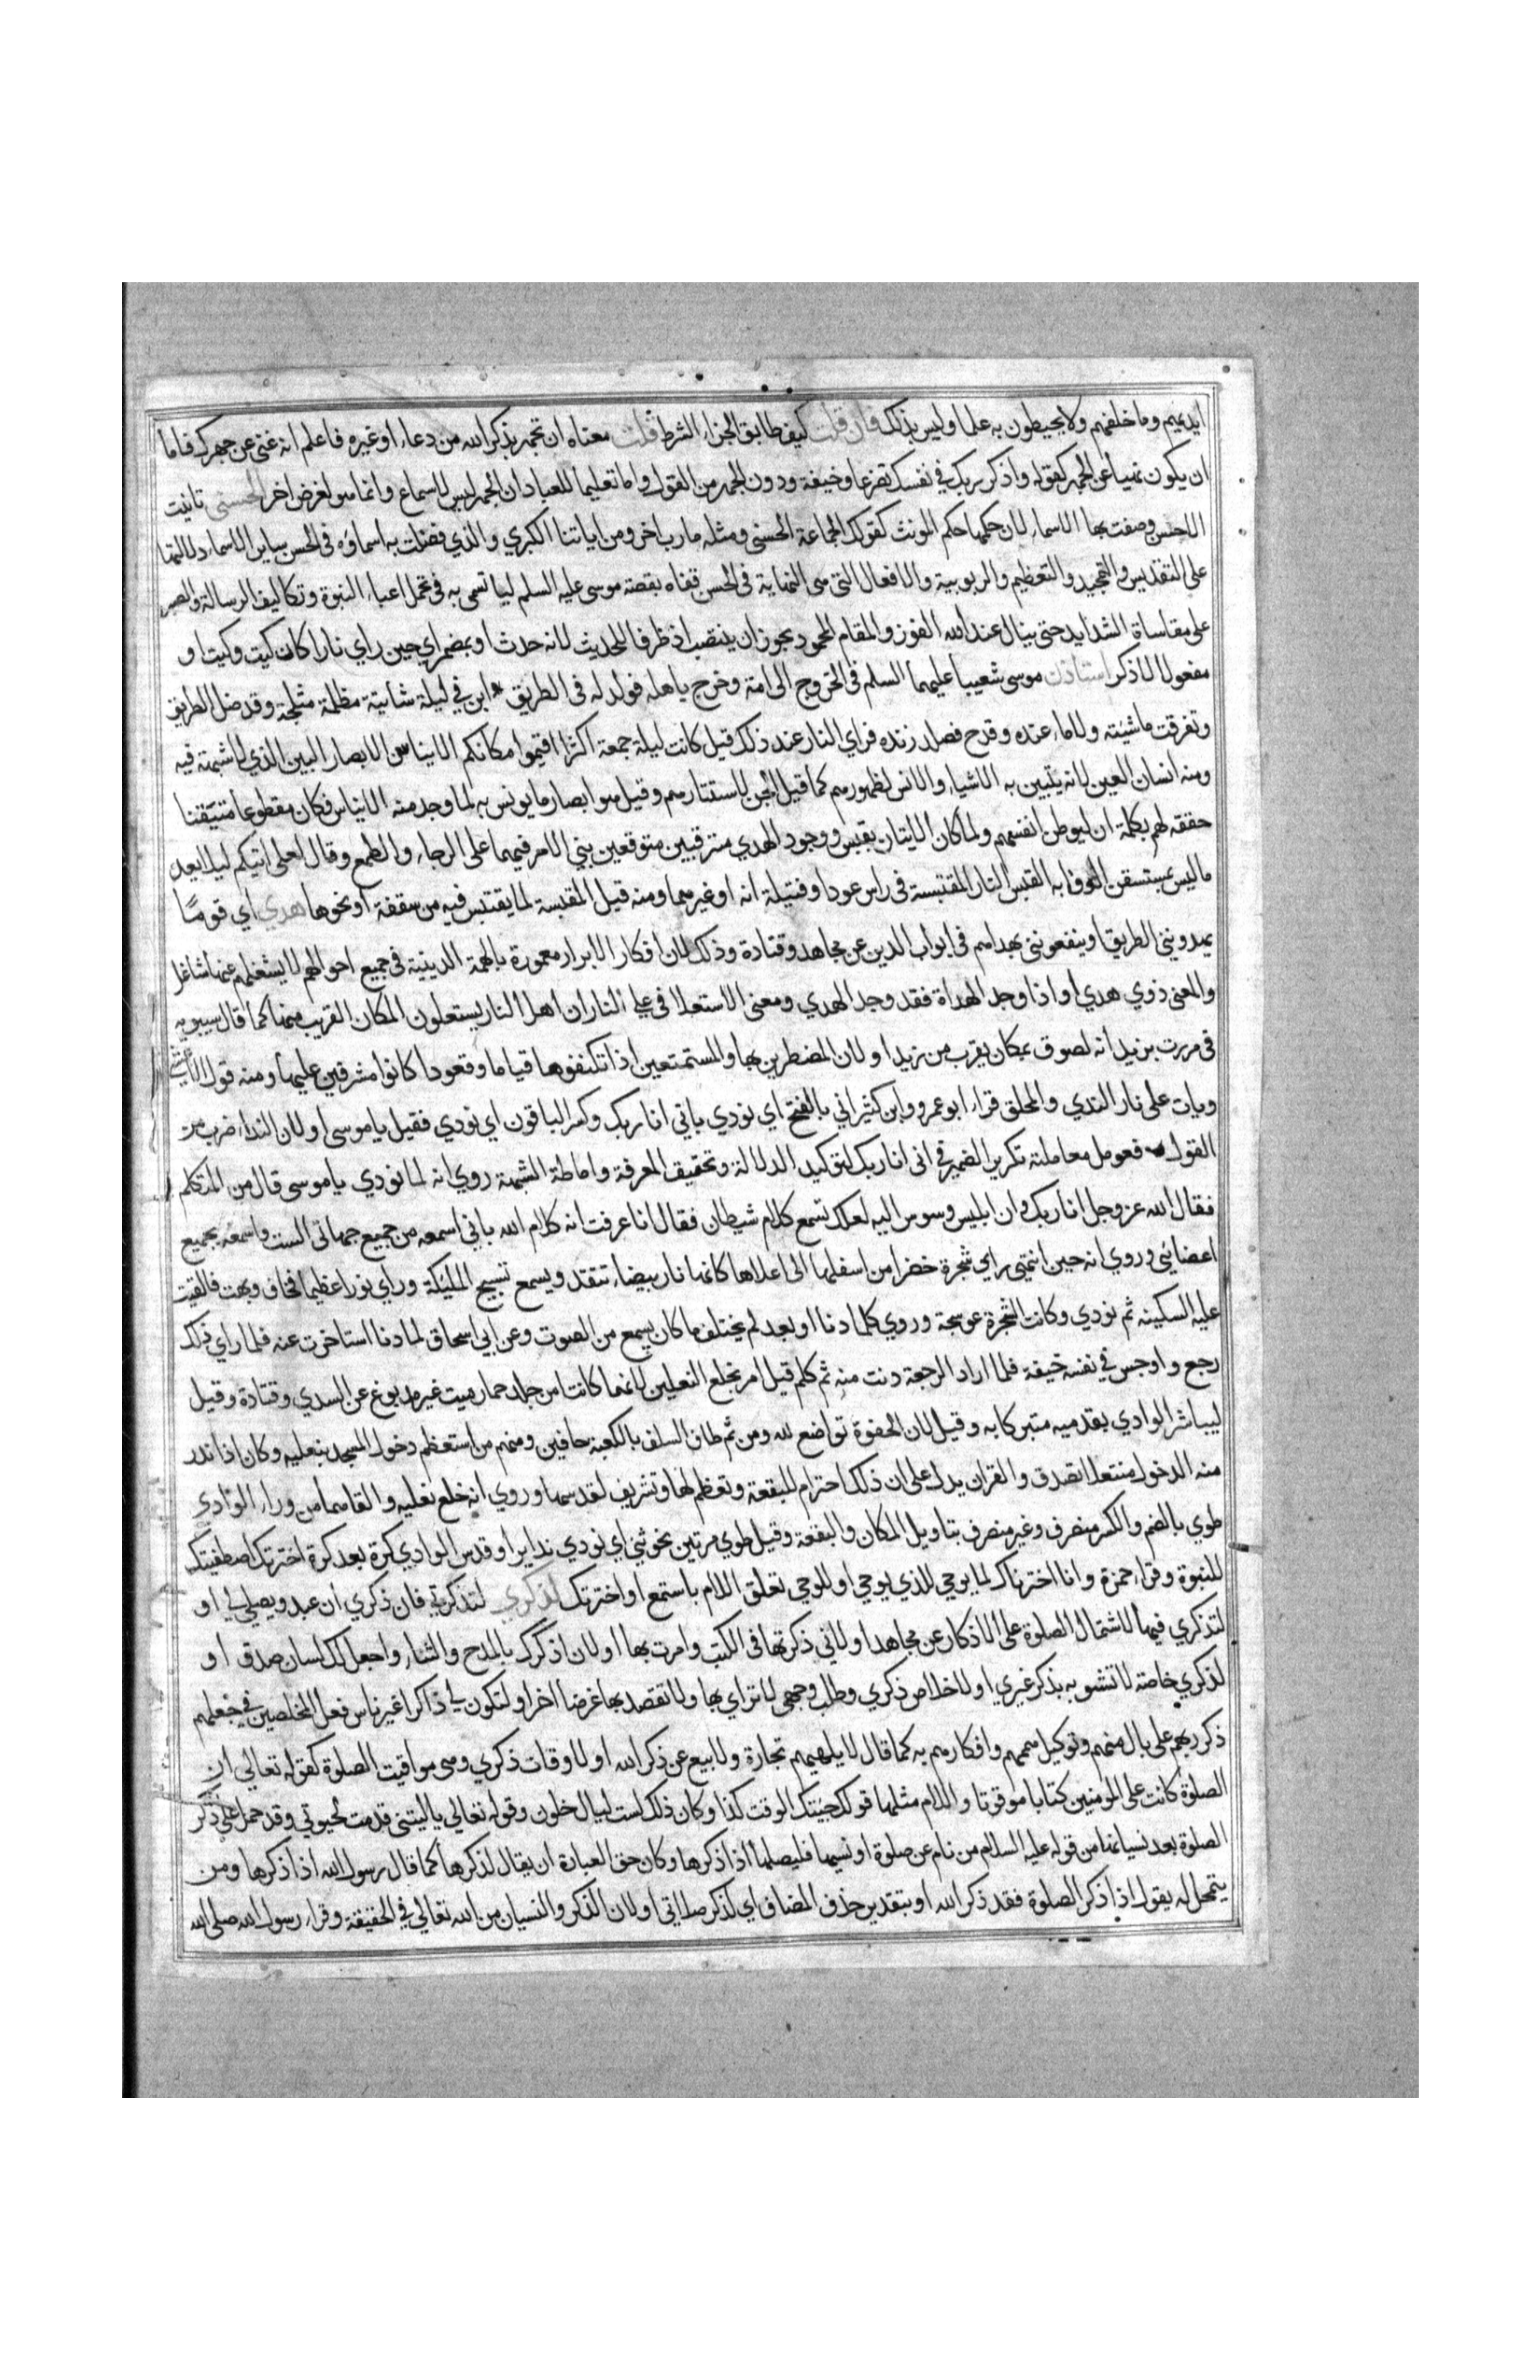 ايديهم وما خلفهم ولا يحيطون به علما وليس بذلك فان قلت كيف طابق الجزاء الشرط قلت معناه ان تجهر بذكر الله من دعاء او غيره فاعلم انه غنى عن جهرك فاما
ان يكون نهيا عن الجهر كقوله واذكر ربك في نفسك تضرعا وخيفة ودون الجهر من القول واما تعليما للعباد ان الجهر ليس لاسماع وانما هو لغرض اخر الحسنى تانيث
الاحسن وصفت بها الاسماء لان حكمها حكم المونث كقولك الجماعة الحسنى ومثله مارب اخرى ومن اياتنا الكبري والذي فضلت به اسماؤه فى الحسن سايرا الاسماء دلالتها
على التقديس والتمجيد والتعظيم والربوبية والافعال التى هى النهاية فى الحسن قفاه بقصة موسى عليه السلم ليا تسى به فى تحمل اعباء النبوة وتكاليف الرسالة والصبر
على مقاساة الشدايد حتى ينال عند الله الفوز والمقام المحمود يجوز ان ينتصب اذ ظرفا للحديث لانه حدث او بمضمر اي حين راي نارا كان كيت وكيت او
مفعولا لاذكر استاذن موسى شعيبا عليهما السلم فى الخروج الى امه وخرج باهله فولد له فى الطريق ابن في ليلة شاتية مظلمة مثلجة وقد ضل الطريق
وتفرقت ماشيته ولا ماء عنده وقدح فصلد زنده فراي النار عند ذلك قيل كانت ليلة جمعة اكثرا اقيموا مكانكم الايناس الابصار البين الذي لا شبهة فيه
ومنه انسان العين لانه يتبين به الاشياء والانس لظهورهم كما قيل الجن لاستتارهم وقيل هو ابصار ما يونس به لما وجد منه الايناس فكان مقطوعا متيقنا
حققه لهم بكلمة ان ليوطن انفسهم ولما كان الايتان بقبس ووجود الهدي مترقبين متوقعين بني الامر فيهما على الرجاء والطمع وقال لعلى اتيكم ليلا يعد
ما ليس بمستيقن الوفا به القبس النار المقتبسة فى راس عود او فتيلة او غيرهما ومنه قيل المقبسة لما يقتبس فيه من سقفة او نحوها هدي اي قوما
يهدوننى الطريق او ينفعوننى بهداهم فى ابواب الدين عن مجاهد وقتادة وذلك لان افكار الابرار معمورة بالهمة الدينية فى جميع احوالهم لا يشغلهم عنها شاغل
والمعنى ذوي هدي او اذا وجد الهداة فقد وجد الهدي ومعنى الاستعلا فى على النار ان اهل النار يستعلون المكان القريب منها كما قال سيبويه
فى مررت بزيد انه لصوق بمكان يقرب من زيد او لان المضطرين بها والمستمتعين اذا تكنفوها قياما وقعودا كانوا مشرفين عليها ومنه قول الاعشى
وبات على نار الندي والمحلق قراء ابو عمرو وابن كثير اني بالفتح اي نودي باني انا ربك وكسر الباقون اي نودي فقيل يا موسى او لان النداء ضرب من
القول فعومل معاملته تكرير الضمير فى انى انا ربك لتوكيد الدلالة وتحقيق المعرفة واماطة الشبهة روي انه لما نودي يا موسى قال من المتكلم
فقال الله عز وجل انا ربك وان ابليس وسوس اليه لعلك تسمع كلام شيطان فقال انا عرفت انه كلام الله باني اسمعه من جميع جهاتى الست واسمعه بجميع
اعضائي وروي انه حين انتهى راي شجرة خضرا من اسفلها الى اعلاها كانها نار بيضاء تتقد ويسمع تسبيح المليكة وراي نورا عظيما فخاف وبهت فالقيت
عليه السكينه ثم نودي وكانت الشجرة عوسجة وروي كلما دنا او بعد لم يختلف ما كان يسمع من الصوت وعن ابي اسحاق لما دنا استاخرت عنه فلما راي ذلك
رجع واوجس في نفسه خيفة فلما اراد الرجعة دنت منه ثم كلم قيل امر بخلع النعلين لانهما كانتا من جلد حمار ميت غير مدبوغ عن السدي وقتادة وقيل
ليباشر الوادي بقدميه متبركا به وقيل لان الحفوة تواضع لله ومن ثم طاف السلف بالكعبة حافين ومنهم من استعظم دخول المسجد بنعليه وكان اذا ندر
منه الدخول منتعلا تصدق والقران يدل على ان ذلك احترام للبقعة وتعظيم لها وتشريف لقدسها وروي انه خلع نعليه والقاهما من وراء الوادي
طوي بالضم والكسر منصرف وغير منصرف بتاويل المكان والبقعة وقيل طوي مرتين نحو ثنى اي نودي ندايين او قدس الوادي كرة بعد كرة اخترتك اصطفيتك
للنبوة وقراء حمزة وانا اخترناك لما يوحي للذي يوحي او للوحي تعلق اللام باستمع او اخترتك لذكري لتذكرني فان ذكري ان عبد ويصلى لي او
لتذكري فيها لاشتمال الصلوة على الاذكار عن مجاهد او لاني ذكرتها فى الكتب وامرت بها او لان اذكرك بالمدح والثناء واجعل لك لسان صدق او
لذكري خاصة لا تشوبه بذكر غيري او لاخلاص ذكري وطلب وجهى لا ترأي بها ولا تقصد بها غرضا اخر او لتكون لي ذاكرا غير ناس فعل المخلصين في جعلهم
ذكر ربهم على بال منهم وتوكيل هممهم وافكارهم به كما قال لا يلهيهم تجارة ولا بيع عن ذكر الله او لاوقات ذكري وهى مواقيت الصلوة كقوله تعالي ان
الصلوة كانت على المومنين كتابا موقوتا واللام مثلها قولك جيتك الوقت كذا وكان ذلك لست ليال خلون وقوله تعالي يا ليتنى قدمت لحيوتي وقد حمل على ذكر
الصلوة بعد نسيانها من قوله عليه السلام من نام عن صلوة او نسيها فليصلها اذا ذكرها وكان حق العبادة ان يقال لذكرها كما قال رسول الله اذا ذكرها ومن
يتمحل له يقول اذا ذكر الصلوة فقد ذكر الله او بتقدير حذف المضاف اي لذكر صلاتي او لان الذكر والنسيان من الله تعالي في الحقيقة وقراء رسول الله صلى الله